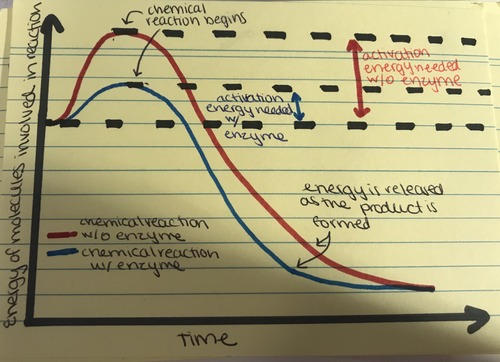 chemical
reaction begins
energy of molecules involved in reaction
activation
energy needed
w/o enzyme
activation
energy needed
w/
enzyme
energy is released
as the product is
formed
chemical reaction
w/o enzyme
chemical reaction
w/ enzyme
Time